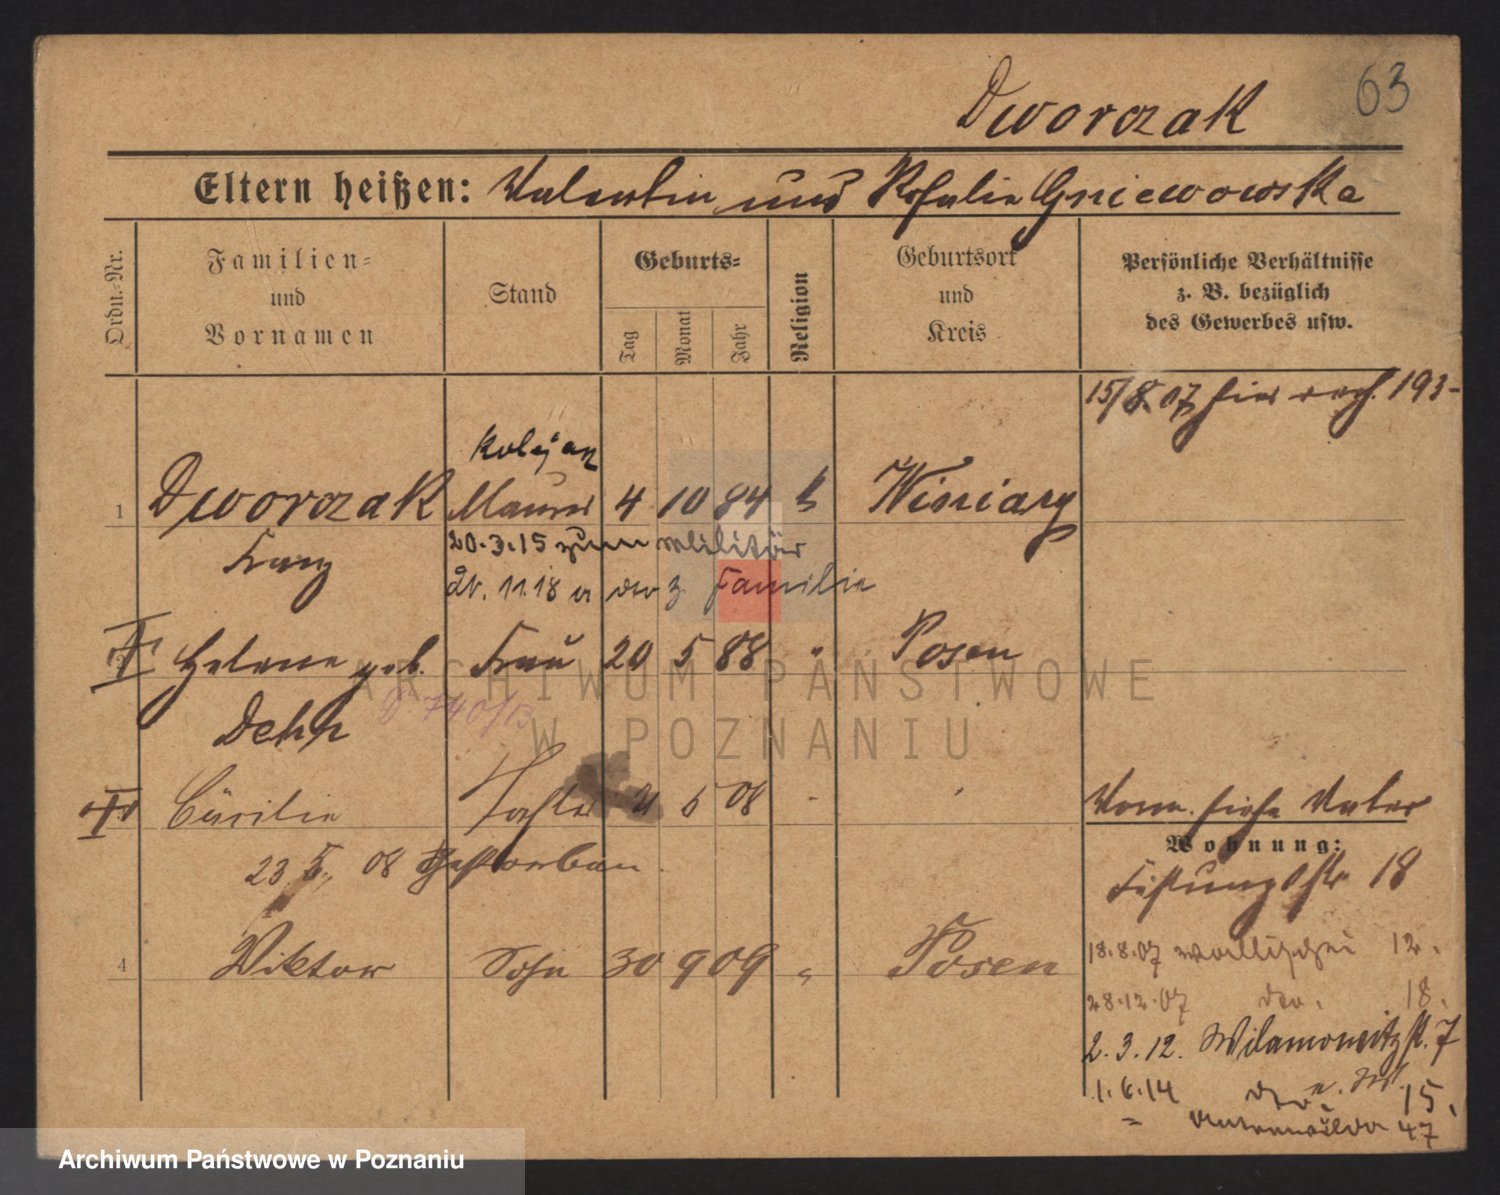 63
Dworczak
Eltern heißen: Valentin und Rosalie Gniewowska
Ordn.-Nr.
Familien- und Vornamen
Stand
Geburts-
Tag
Monat
Jahr
Religion
Geburtsort und Kreis
Persönliche Verhältnisse z. B. bezüglich des Gewerbes usw.
15/8.07 hier 193-
1 Dworczak Maurer 4 10 84 k Winiary
Franz 20.3.15 zum Militär
11.18 z. Familie
Helene geb. Frau 20 5 88 " Posen
Dehn
740/13
Cäcilie Tochter 21 5 08
23 5. 08 gestorben
4 Viktor Sohn 30 9 09 " Posen
Vorm. siehe Vater
Wohnung:
Festungsstr 18
18.8.07 Wallischei 12.
28.12.07 dto. 18.
2.3.12. Wilamowitzstr. 7
1.6.14 15.
47
ARCHIWUM PAŃSTWOWE
W POZNANIU
Archiwum Państwowe w Poznaniu